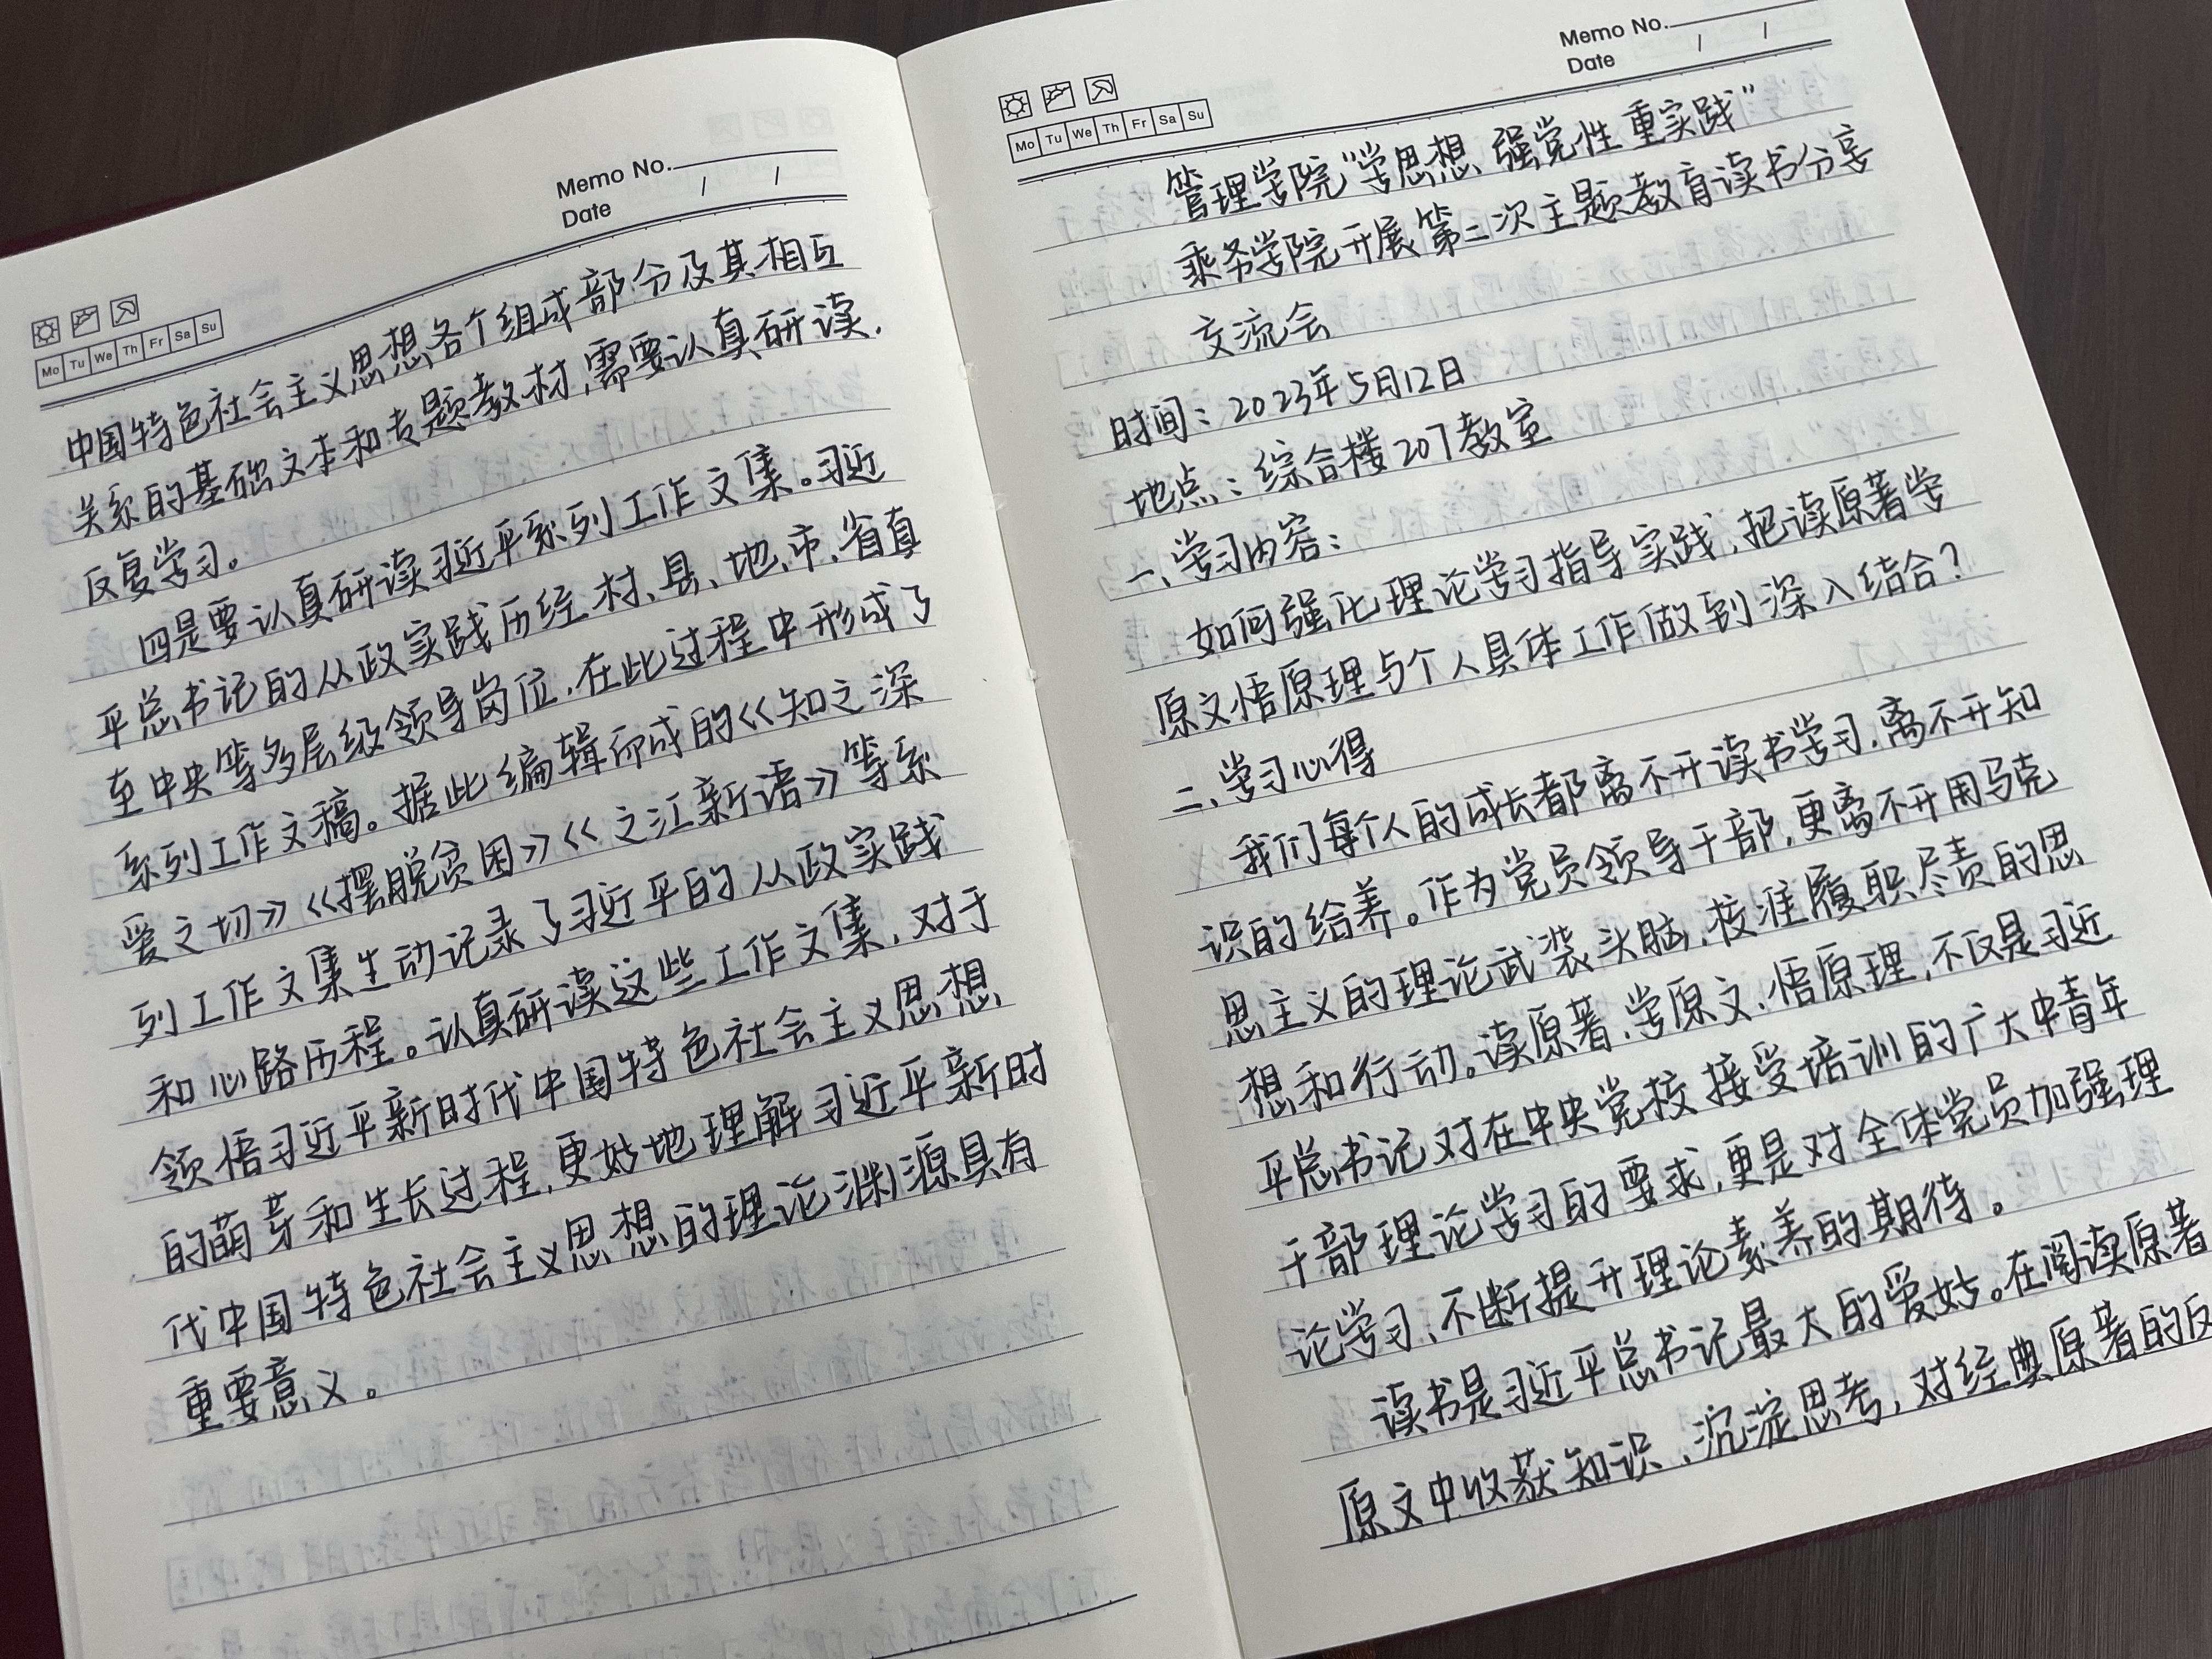 Memo No.
Date / /
Mo Tu We Th Fr Sa Su
中国特色社会主义思想各个组成部分及其相互
关系的基础文本和专题教材,需要认真研读.
反复学习。
四是要认真研读习近平系列工作文集。习近
平总书记的从政实践历经村、县、地、市、省直
至中央等多层级领导岗位,在此过程中形成了
系列工作文稿。据此编辑而成的《知之深
爱之切》《摆脱贫困》《之江新语》等系
列工作文集生动记录了习近平的从政实践
和心路历程。认真研读这些工作文集,对于
领悟习近平新时代中国特色社会主义思想
的萌芽和生长过程,更好地理解习近平新时
代中国特色社会主义思想的理论渊源具有
重要意义。
Memo No.
Date / /
Mo Tu We Th Fr Sa Su
管理学院"学思想 强党性 重实践"
乘务学院开展第二次主题教育读书分享
交流会
时间:2023年5月12日
地点:综合楼207教室
一、学习内容:
如何强化理论学习指导实践,把读原著学
原文悟原理与个人具体工作做到深入结合?
二、学习心得
我们每个人的成长都离不开读书学习,离不开知
识的给养。作为党员领导干部,更离不开用马克
思主义的理论武装头脑,校准履职尽责的思
想和行动。读原著、学原文、悟原理,不仅是习近
平总书记对在中央党校接受培训的广大中青年
干部理论学习的要求,更是对全体党员加强理
论学习、不断提升理论素养的期待。
读书是习近平总书记最大的爱好。在阅读原著
原文中收获知识、沉淀思考,对经典原著的反